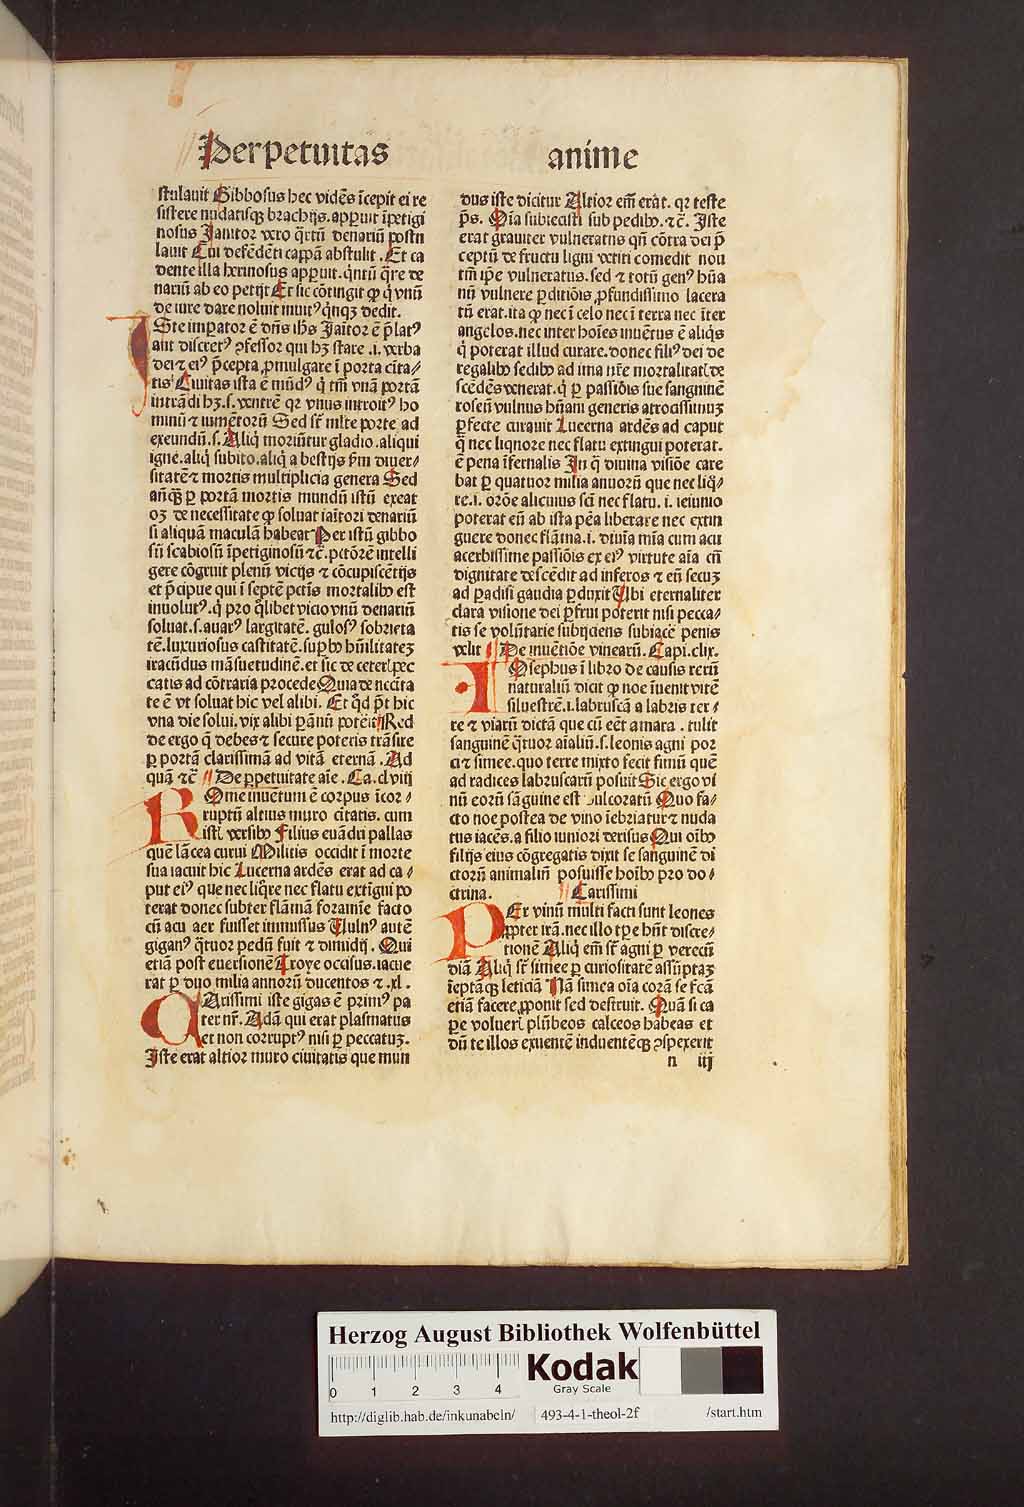 Perpetuitas anime
stulauit Gibbosus hec vidēs īcepit ei re
sistere nudatisqꝫ brachijs.apꝑuit īpetigi
nosus Janitor vero q̈rtū denariū postu
lauit Cui defēdēti cappā abstulit .Et ca
dente illa herinosus apparuit.q̄ntū q̄re de
nariū ab eo petijt Et sic cōtingit ꝙ q̇ vnū
de iure dare noluit inuitꝰ q̄nqꝫ dedit.
ISte imꝑator ē dn̄s ihs Janitor ē p̄latꝰ
aut discretꝰ ꝯfessor qui hꝫ stare .i. verba
dei ⁊ eiꝰ p̄cepta ꝓmulgare ī porta ciuita-
tis Ciuitas ista ē mūdꝰ q̇ tm̄ vnā portā
intrādi hꝫ.s. ventrē qꝛ vnus introitꝰ ho
minū ⁊ iumētorū Sed sr̄ mlte porte ad
exeundū.s. Aliq̇ moriūtur gladio .aliqui
igne.aliq̇ subito.aliq̇ a bestijs ẜm diuer-
sitatē ⁊ mortis multiplicia genera Sed
an̄qꝫ ꝑ portā mortis mundū istū exeat
oꝫ de necessitate ꝙ soluat ianitori denariū
si aliquam maculā habeat Per istū gibbo
sū scabiosū īpetiginosū ⁊c̄ .pctōrē intelli
gere cōgruit plenū vicijs ⁊ cōcupiscētijs
et p̄cipue qui ī septē pctīs mortalibꝰ est
inuolutꝰ.q̇ pro q̄libet vicio vnū denariū
soluat.s.auarꝰ largitatē. gulosꝰ sobrieta
tē.luxuriosus castitatē.suꝑbꝰ hūilitatē
iracūdus māsuetudinē.et sic de ceteris pec
catis ad cōtraria procede Quia de nccīta
te ē vt soluat hic vel alibi. Et q̄d pt̄ hic
vna die solui.vix alibi ꝑ annū poterit Red
de ergo q̄ debes ⁊ secure poteris trāsire
ꝑ portā clarissimā ad vitā eternā .Ad
quā ⁊c̄ De ꝑpetuitate aīe .Ca.clviij
ROme inuētum ē corpus īcor-
ruptū altius muro ciuitatis. cum
istis versibꝰ Filius euādri pallas
quē lācea curui Militis occidit ī morte
sua iacuit hic Lucerna ardēs erat ad ca-
put eiꝰ que nec liq̄re nec flatu extīgui po
terat donec subter flāmā foramīe facto
cū acu aer fuisset immissus Vulnꝰ autē
gigantꝰ q̈tuor pedū fuit ⁊ dimidij. Qui
etiā post euersionē Troye occisus.iacue
rat ꝑ duo milia annorū ducentos ⁊ .xl.
CArissimi iste gigas ē primꝰ pa
ter nr̄. Adā qui erat plasmatus
et non corruptꝰ nisi ꝑ peccatuꝫ.
Iste erat altior muro ciuitatis que mun
dus iste dicitur Altior em̄ erat. qꝛ teste
ps. Oīa subiecisti sub pedibꝰ. ⁊c̄. Iste
erat grauiter vulneratus qn̄ cōtra dei p̄
ceptū de fructu ligni vetiti comedit non
tm̄ ip̄e vulneratus.sed ⁊ totū genꝰ hūa
nū vulnere ꝑditiōis ꝓfundissimo lacera
tū erat.ita ꝙ nec ī celo nec ī terra nec īter
angelos.nec inter hoīes inuētus ē aliq̇s
q̇ poterat illud curare.donec filiꝰ dei de
regalibꝰ sedibꝰ ad ima nr̄e mortalitatis de
scēdēs venerat.q̇ ꝑ passiōis sue sanguinē
roseū vulnus hūani generis atrocissimuꝫ
ꝑfecte curauit Lucerna ardēs ad caput
q̄ nec liquore nec flatu extingui poterat.
ē pena īfernalis In q̄ diuina visiōe care
bat ꝑ quatuor milia annorū que nec liq̄-
re.i. orōe alicuius scī nec flatu. i. ieiunio
poterat eū ab ista pēa liberare nec extin
guere donec flāma.i. diuīa mīa cum acu
acerbissime passiōis ex eiꝰ virtute aīa cū
dignitate descēdit ad inferos ⁊ eū secuꝫ
ad ꝑadisi gaudia ꝑduxit Ubi eternaliter
clara visione dei ꝑfrui poterit nisi pecca-
tis se volūtarie subijciens subiacē penis
velit De inuētiōe vinearū. Capi.clix.
IOsephus ī libro de causis rerū
naturaliū dicit ꝙ noe īuenit vitē
siluestrē.i.labruscā a labris ter-
re ⁊ viarū dictā que cū eēt amara . tulit
sanguinē q̈tuor aīaliū.s.leonis agni por
ci ⁊ simee.quo terre mixto fecit fimū quē
ad radices labruscarū posuit Sic ergo vi
nū eorū sāguine est dulcoratū Quo fa-
cto noe postea de vino īebriatur ⁊ nuda
tus iacēs.a filio iuniori derisus Qui oībꝰ
filijs eius cōgregatis dixit se sanguinē di
ctorū animaliū posuisse hoībꝰ pro do-
ctrina. Carissimi
PEr vinū multi facti sunt leones
ꝓpter irā.nec illo tꝑe hn̄t discre-
tionē Aliq̇ em̄ sr̄ agni ꝑ verecū
diā Aliq̇ sr̄ simee ꝑ curiositatē assūptaꝫ
īeptāqꝫ leticiā Nā simea oīa corā se fcā
etiā facere ꝓponit sed destruit. Quā si ca
ꝑe volueris plūbeos calceos habeas et
dū te illos exuentē induentēqꝫ ꝯspexerit
n iij
Herzog August Bibliothek Wolfenbüttel
0 1 2 3 4
Kodak
Gray Scale
http://diglib.hab.de/inkunabeln/ 493-4-1-theol-2f /start.htm